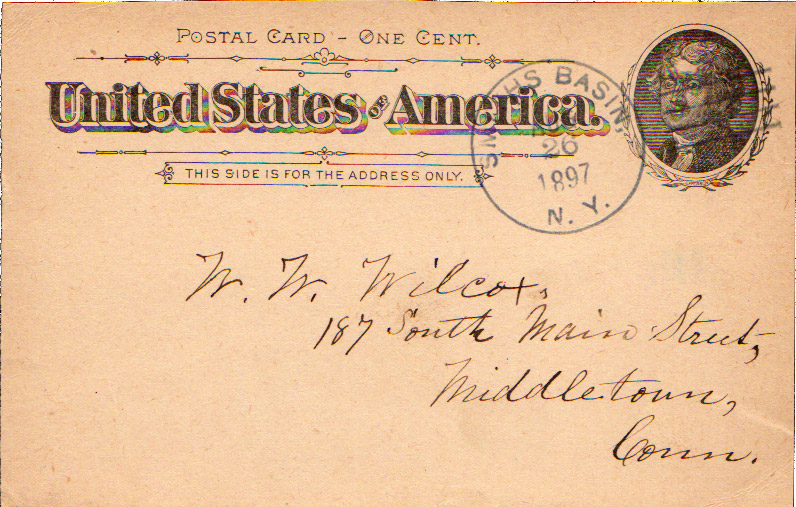 POSTAL CARD - ONE CENT.
United States OF America.
THIS SIDE IS FOR THE ADDRESS ONLY.
BASIN,
26
1897
N. Y.
W. W. Wilcox,
187 South Main Street,
Middletown,
Conn.